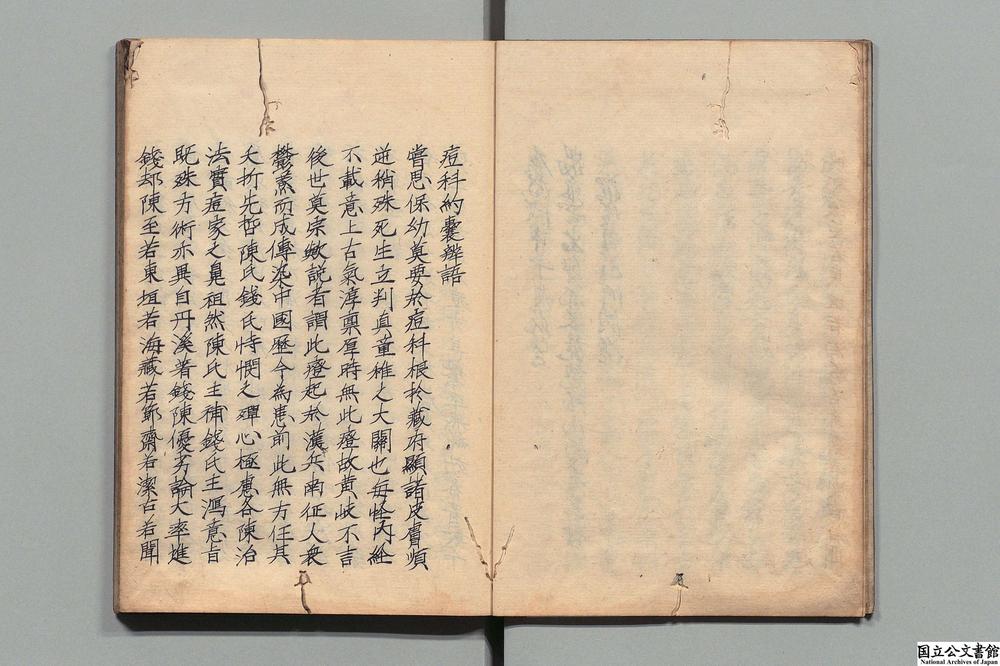 痘科約囊辨語
嘗思保幼莫要於痘科根於藏府顯諸皮膚順
逆稍殊死生立判真童稚之大關也每怪內經
不載意上古氣淳稟厚時無此證故黃岐不言
後世莫宗歟説者謂此證起於漢兵南征人衆
鬱蒸而成傳染中國歷今為患前此無方任其
夭折先哲陳氏錢氏恃憫之殫心極慮各陳治
法實痘家之鼻祖然陳氏主補錢氏主瀉意旨
既殊方術亦異自丹溪著錢陳優劣論大率進
錢却陳至若東垣若海藏若節齋若潔古若聞
国立公文書館
National Archives of Japan